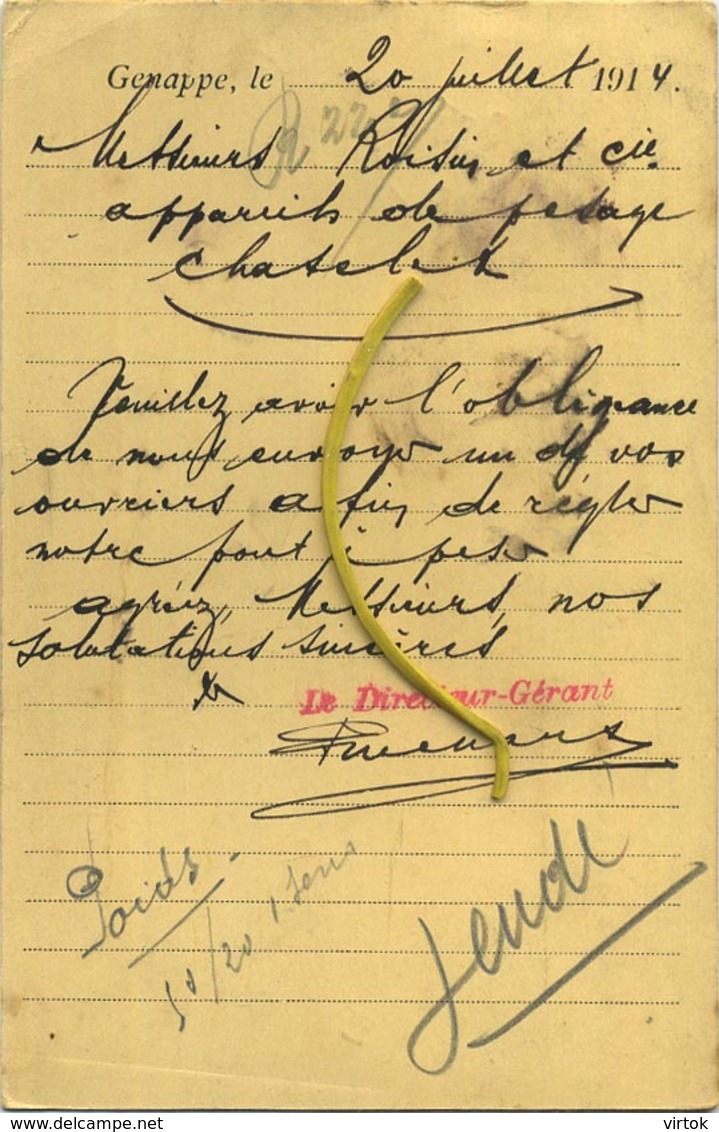 Genappe, le 20 juillet 1914.
R 22
Messieurs Roisin et cie
appareils de pesage
chatelet
Veuillez avoir l'obligeance
de nous envoyer un de vos
ouvriers afin de régler
notre pont à peser
agréez, Messieurs, nos
salutations sincères
Le Directeur-Gérant
Poids -
50/20 1
Jeudi
virtok